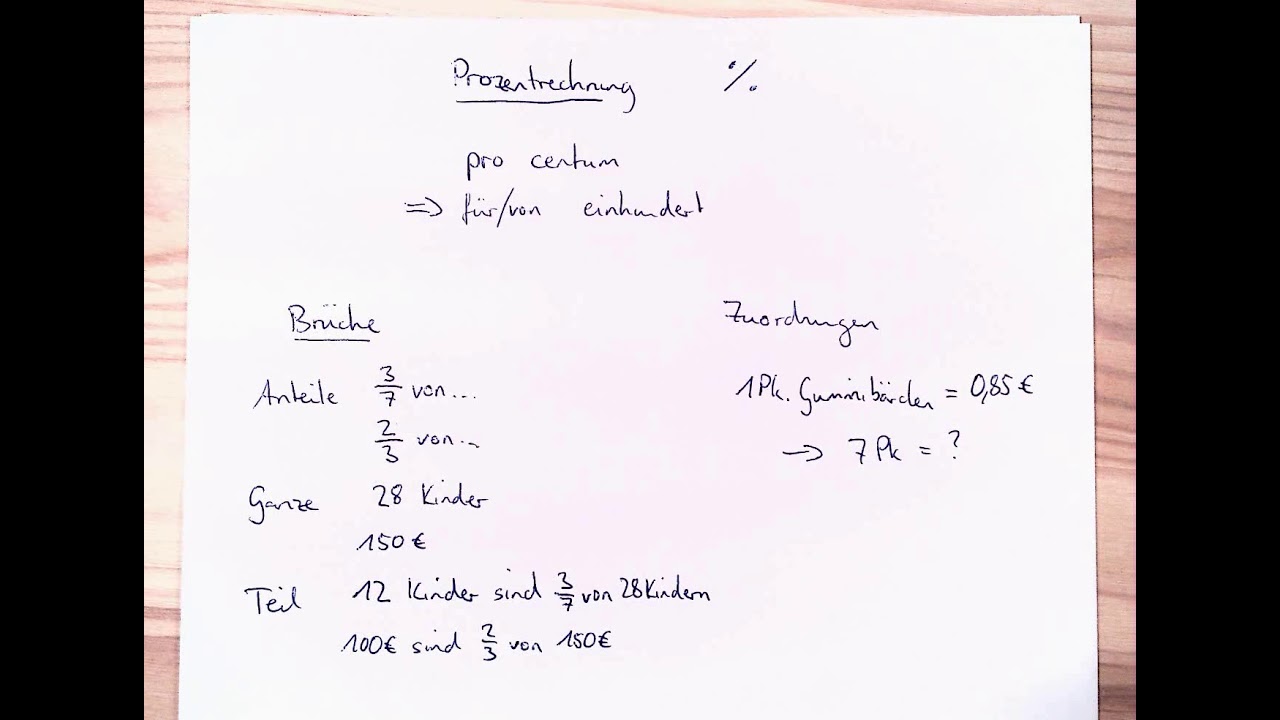 Prozentrechnung %
pro centum
⇒ für/von einhundert
Brüche
Anteile 3/7 von...
2/3 von...
Ganze 28 Kinder
150€
Teil 12 Kinder sind 3/7 von 28 Kindern
100€ sind 2/3 von 150€
Zuordnungen
1 Pk. Gummibärchen = 0,85€
→ 7 Pk = ?